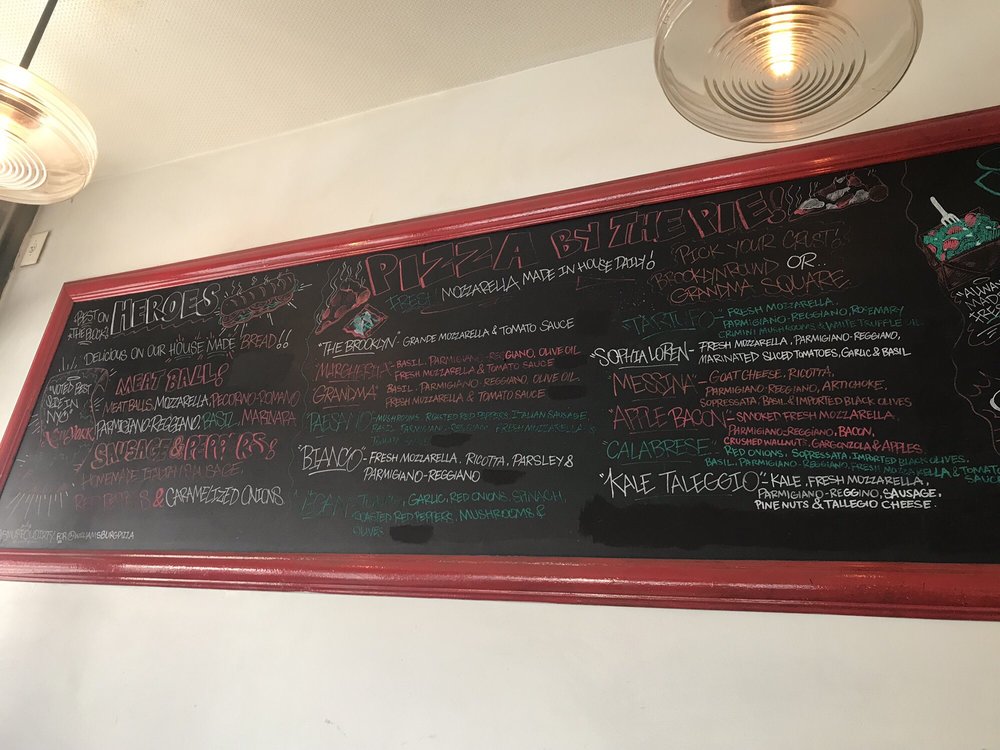 "BEST ON
THE BLOCK"
HEROES
DELICIOUS ON OUR HOUSE MADE BREAD!!
"VOTED BEST
IN
NYC"
MEATBALL!
MEATBALLS, MOZZARELLA, PECORINO-ROMANO
PARMIGIANO-REGGIANO, BASIL, MARINARA
SAUSAGE & PEPPERS!
HOMEMADE ITALIAN SAUSAGE,
RED PEPPERS & CARAMELIZED ONIONS
FOR @WILLIAMSBURGPIZZA
PIZZA BY THE PIE!
FRESH MOZZARELLA MADE IN HOUSE DAILY!
PICK YOUR CRUST!
BROOKLYN ROUND OR...
GRANDMA SQUARE
"THE BROOKLYN"- GRANDE MOZZARELLA & TOMATO SAUCE
"MARGHERITA"- BASIL, PARMIGIANO-REGGIANO, OLIVE OIL
FRESH MOZZARELLA & TOMATO SAUCE
"GRANDMA" BASIL, PARMIGIANO-REGGIANO, OLIVE OIL
FRESH MOZZARELLA & TOMATO SAUCE
"PAESANO"- MUSHROOMS, ROASTED RED PEPPERS, ITALIAN SAUSAGE
BASIL, PARMIGIANO-REGGIANO, FRESH MOZZARELLA &
TOMATO SAUCE
"BIANCO"- FRESH MOZZARELLA, RICOTTA, PARSLEY &
PARMIGIANO-REGGIANO
GARLIC, RED ONIONS, SPINACH,
ROASTED RED PEPPERS, MUSHROOMS &
OLIVES
"TARTUFO"- FRESH MOZZARELLA,
PARMIGIANO-REGGIANO, ROSEMARY
RIMINI MUSHROOMS & WHITE TRUFFLE OIL
"SOPHIA LOREN"- FRESH MOZZARELLA, PARMIGIANO-REGGIANO,
MARINATED SLICED TOMATOES, GARLIC & BASIL
"MESSINA"- GOAT CHEESE, RICOTTA,
PARMIGIANO-REGGIANO, ARTICHOKE,
SOPRESSATA, BASIL & IMPORTED BLACK OLIVES
"APPLE BACON"- SMOKED FRESH MOZZARELLA,
PARMIGIANO-REGGIANO, BACON,
CRUSHED WALNUTS, GARGONZOLA & APPLES
"CALABRESE" RED ONIONS, SOPRESSATA, IMPORTED BLACK OLIVES,
BASIL, PARMIGIANO-REGGIANO, FRESH MOZZARELLA & TOMATO
SAUCE
"KALE TALEGGIO"- KALE, FRESH MOZZARELLA,
PARMIGIANO-REGGINO, SAUSAGE,
PINE NUTS & TALLEGIO CHEESE.